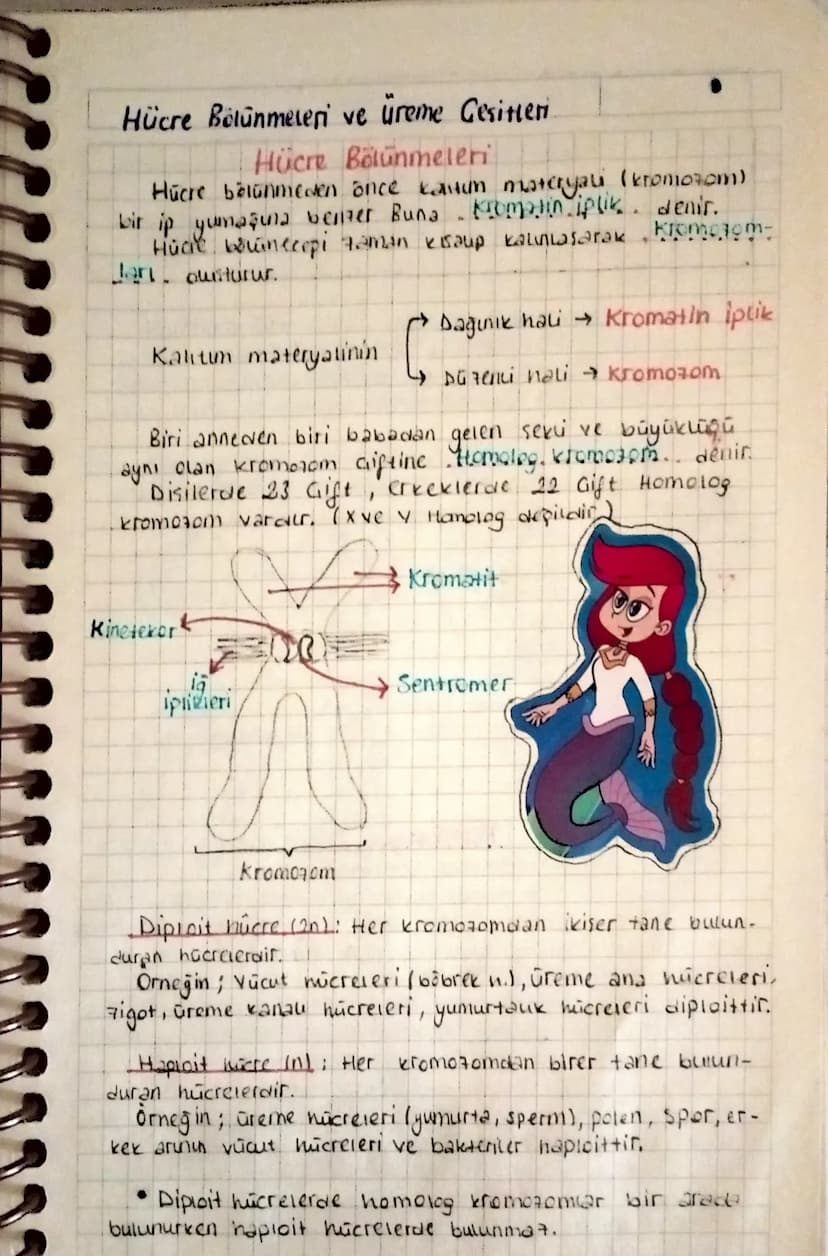 Hücre Bölünmeleri ve Üreme Çeşitleri
Hücre Bölünmeleri
Hücre bölünmeden önce kalıtım materyali (kromozom)
bir ip yumağına benzer Buna . Kromatin iplik . denir.
Hücre bölüneceği zaman kısalıp kalınlaşarak . Kromozom-
ları . oluşturur.
Dağınık hali → Kromatin iplik
Kalıtım materyalinin
Düzenli hali → Kromozom
Biri anneden biri babadan gelen şekli ve büyüklüğü
aynı olan kromozom çiftine . Homolog kromozom .. denir.
Dişilerde 23 Çift, Erkeklerde 22 Çift Homolog
kromozom vardır. (X ve Y Homolog değildir.)
Kromatit
Kinetekor
Sentromer
iğ
iplikleri
Kromozom
Diploit hücre (2n): Her kromozomdan ikişer tane bulun-
duran hücrelerdir.
Örneğin; Vücut hücreleri (böbrek h.), üreme ana hücreleri,
zigot, üreme kanalı hücreleri, yumurtalık hücreleri diploittir.
Haploit hücre (n); Her kromozomdan birer tane bulun-
duran hücrelerdir.
Örneğin; üreme hücreleri (yumurta, sperm), polen, spor, er-
kek arının vücut hücreleri ve bakteriler haploittir.
• Diploit hücrelerde homolog kromozomlar bir arada
bulunurken haploit hücrelerde bulunmaz.